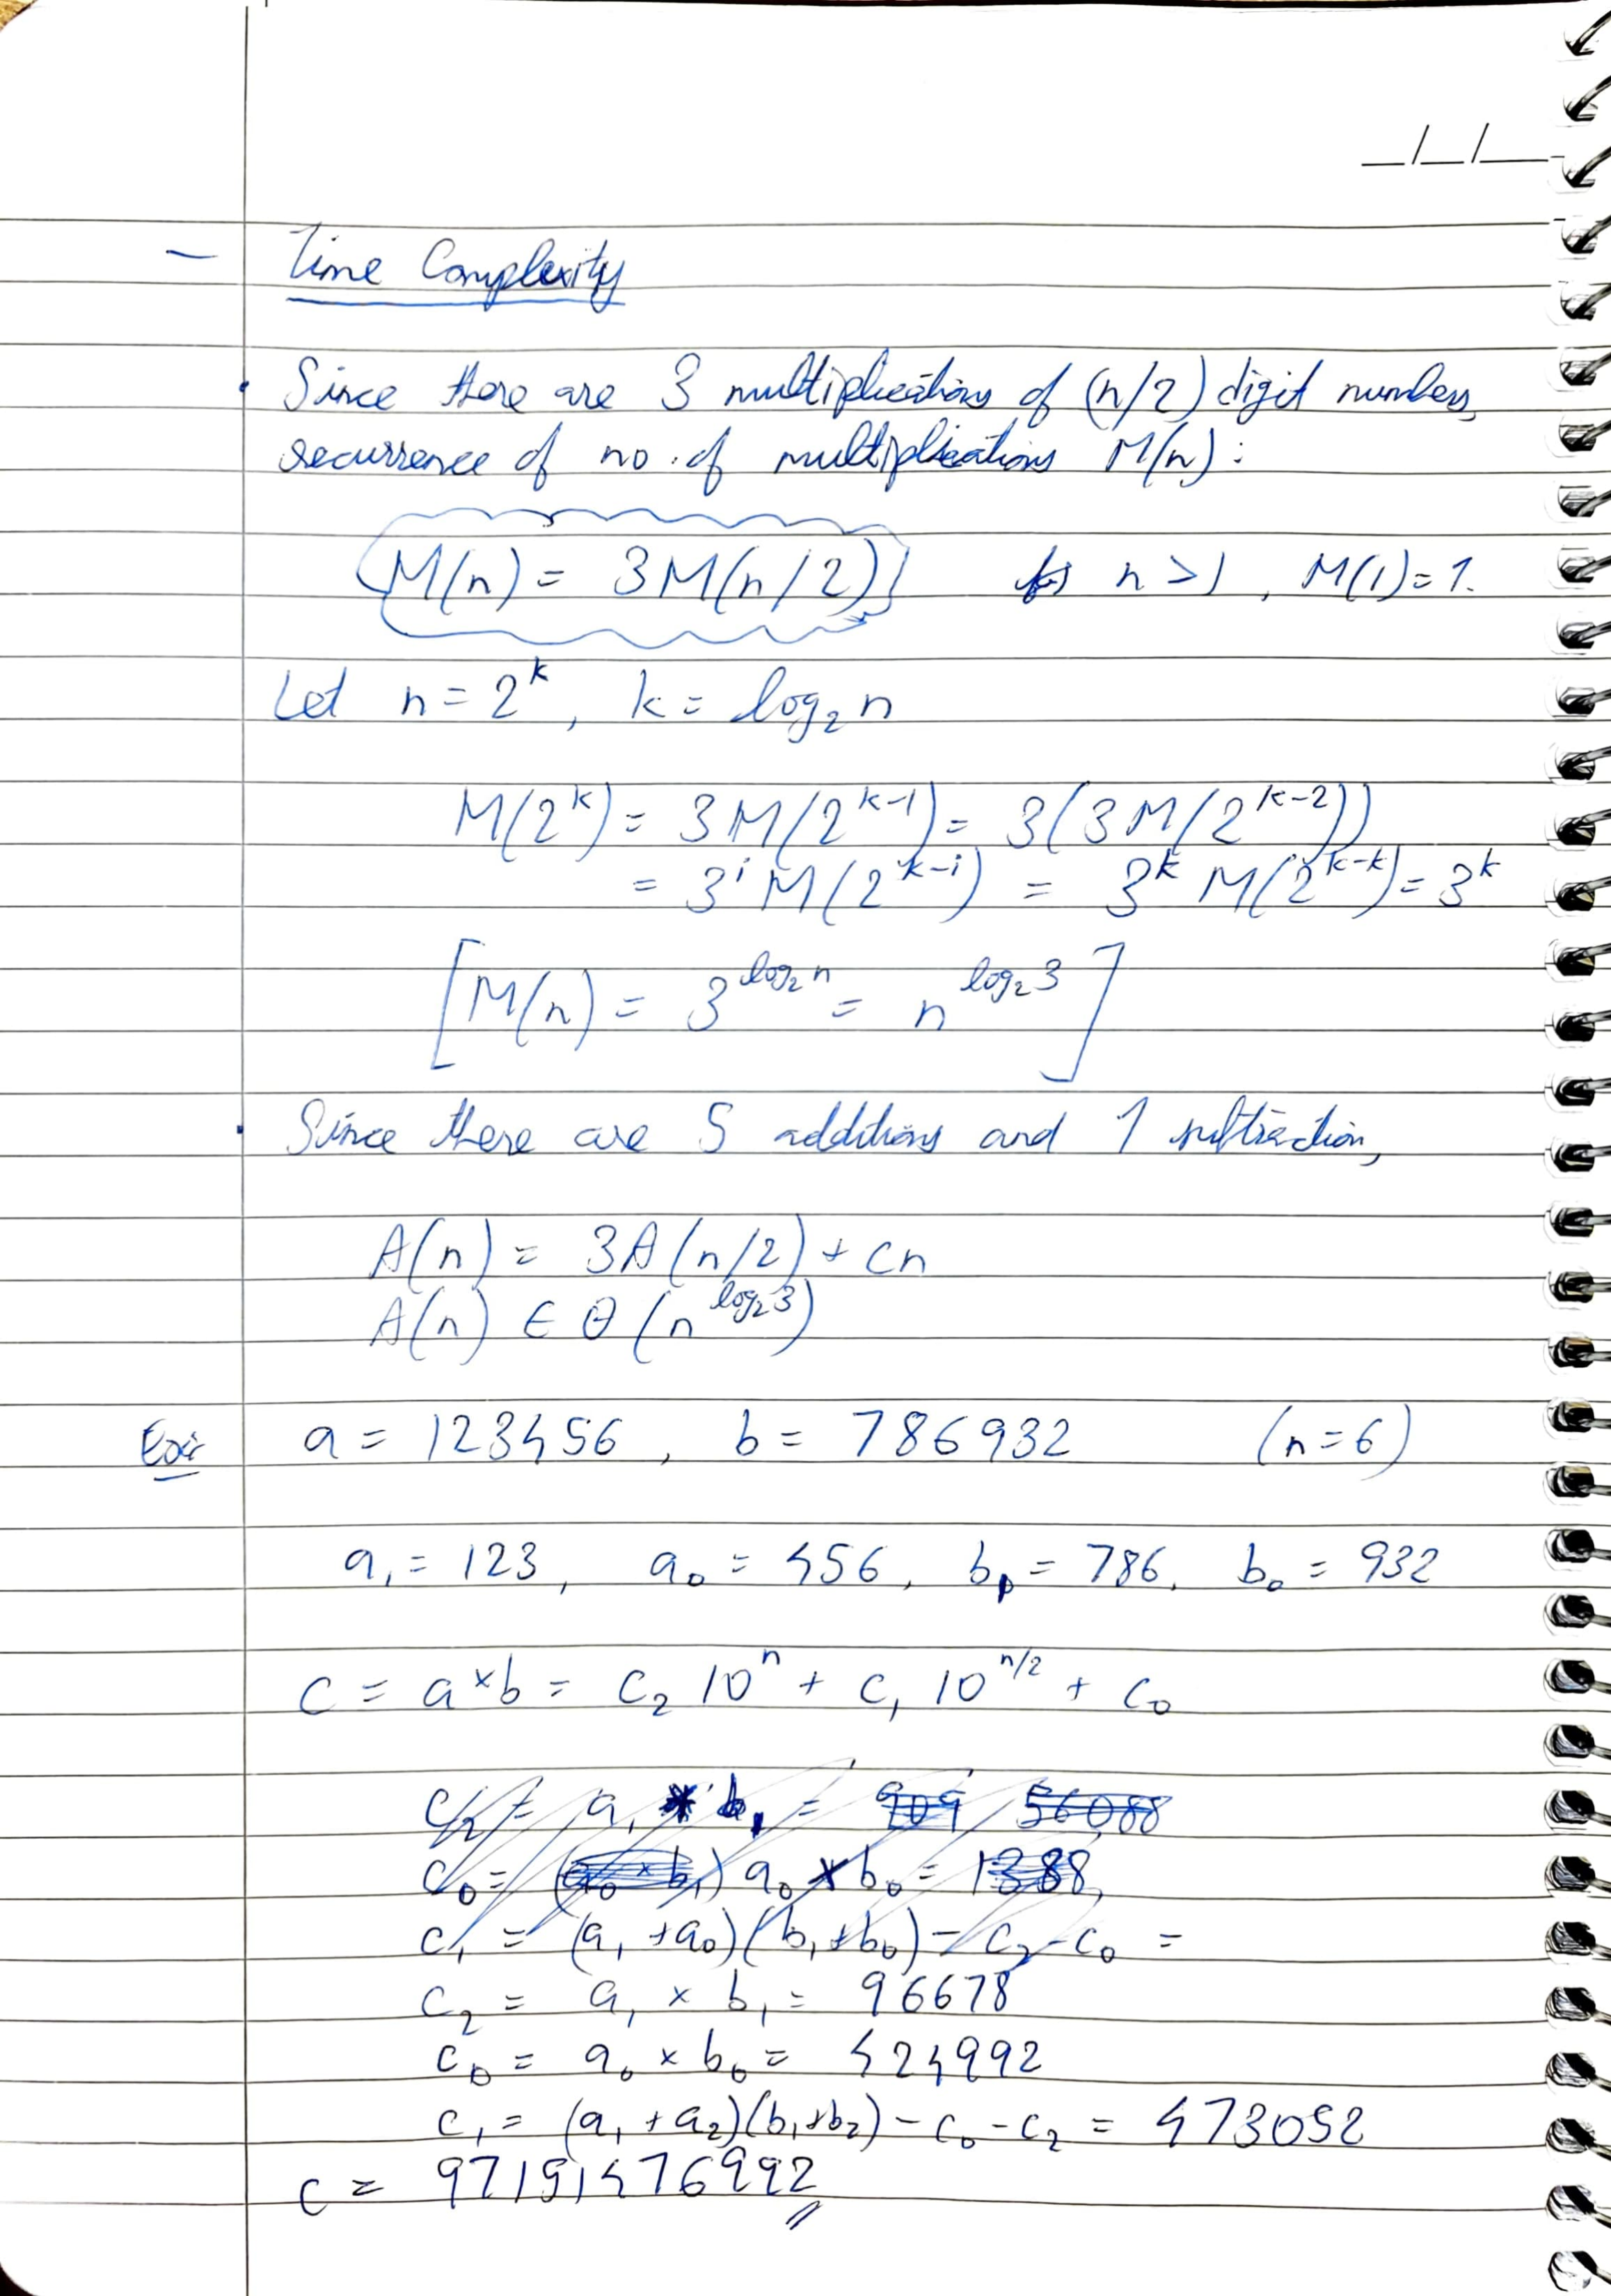 _/_/_
– Time Complexity
• Since there are 3 multiplications of (n/2) digit numbers,
recurrence of no. of multiplications M(n):
M(n) = 3M(n/2) for n > 1, M(1) = 1.
Let n = 2^k, k = log₂n
M(2^k) = 3M(2^{k-1}) = 3(3M(2^{k-2}))
= 3^i M(2^{k-i}) = 3^k M(2^{k-k}) = 3^k
[M(n) = 3^{log₂n} = n^{log₂3}]
• Since there are 5 additions and 1 subtraction,
A(n) = 3A(n/2) + cn
A(n) ∈ Θ(n^{log₂3})
Ex: a = 123456, b = 786932 (n=6)
a₁ = 123, a₀ = 456, b₁ = 786, b₀ = 932
c = a × b = c₂ 10^n + c₁ 10^{n/2} + c₀
c₂ = a₁ * b₁ = 909 56088
c₀ = (a₀ × b₁) a₀ × b₀ = 1388
c₁ = (a₁ + a₀)(b₁ + b₀) - c₂ - c₀ =
c₂ = a₁ × b₁ = 96678
c₀ = a₀ × b₀ = 424992
c₁ = (a₁ + a₂)(b₁ + b₂) - c₀ - c₂ = 473052
c = 97151476992